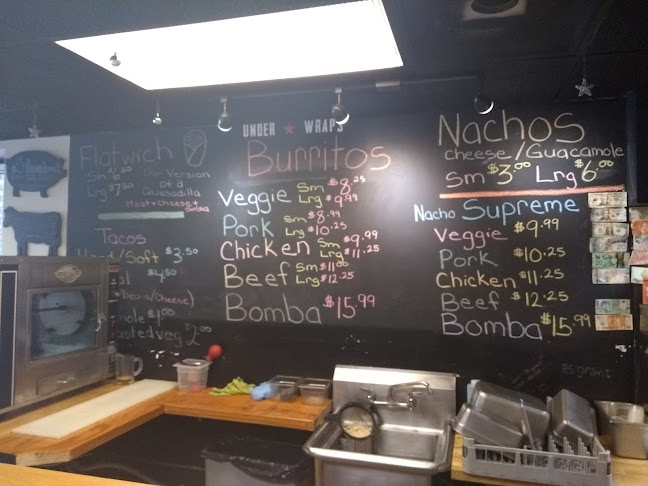 Flatwich
Lrg $7.50
Our Version
Of a
Quesadilla
Meat+Cheese+
Salsa
Tacos
/Soft $3.50
$4.50
/Cheese)
$1.00
veg 2.00
UNDER ★ WRAPS
Burritos
Veggie Sm $8.25
Lrg $9.99
Pork Sm $8.99
Lrg $10.25
Chicken Sm $9.99
Lrg $11.25
Beef Sm $11.00
Lrg $12.25
Bomba $15.99
Nachos
Cheese/Guacamole
Sm $3.00 Lrg $6.00
Nacho Supreme
Veggie $9.99
Pork $10.25
Chicken $11.25
Beef $12.25
Bomba $15.99